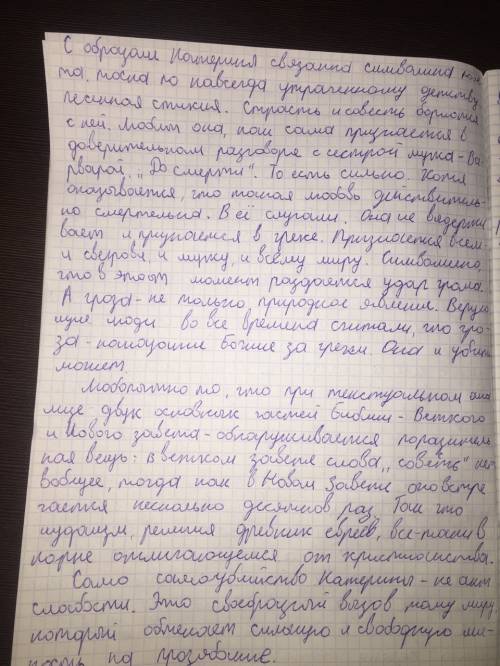 С образом Катерины связанна символика полё
та, тоска по навсегда утраченному детству
песенная стихия. Страсть и совесть борются
с ней. Любит она, как сама признается в
доверительном разговоре с сестрой мужа - Ва
рварой, „До смерти“. То есть сильно. Хотя
оказывается, что такая любовь действитель-
но смертельна. В её случаии. Она не выдержи
вает и признается в грехе. Признается всем
и свекрови, и мужу, и всему миру. Символично,
что в этот момент раздаётся удар грома.
А гроза - не только природное явление. Верую
щие люди во все времена считали, что гро-
за - наказание Божие за грехи. Она и убить
может.
Любопытно то, что при текстуальном ана
лизе двух основных частей Библии - Ветхого
и Нового завета - обнаруживается поразитель
ная вещь: в ветхом завете слова „совесть“ нет
вообщее, тогда как в Новом Завете оно встре
чается несколько десятков раз. Так что
иудаизм, религия древних евреев, все-таки в
корне отличающемся от христианства.
Само самоубийство Катерины - не акт
слабости. Это своебразный вызов тому миру,
который обрекает сильную и свободную лич-
ность на прозябание.